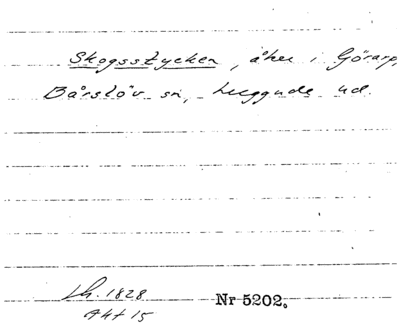 Skogsstycken, åker i Görarp,
Bårslöv sn, Luggude hd.
Lh. 1828
Akt 15
Nr 5202.